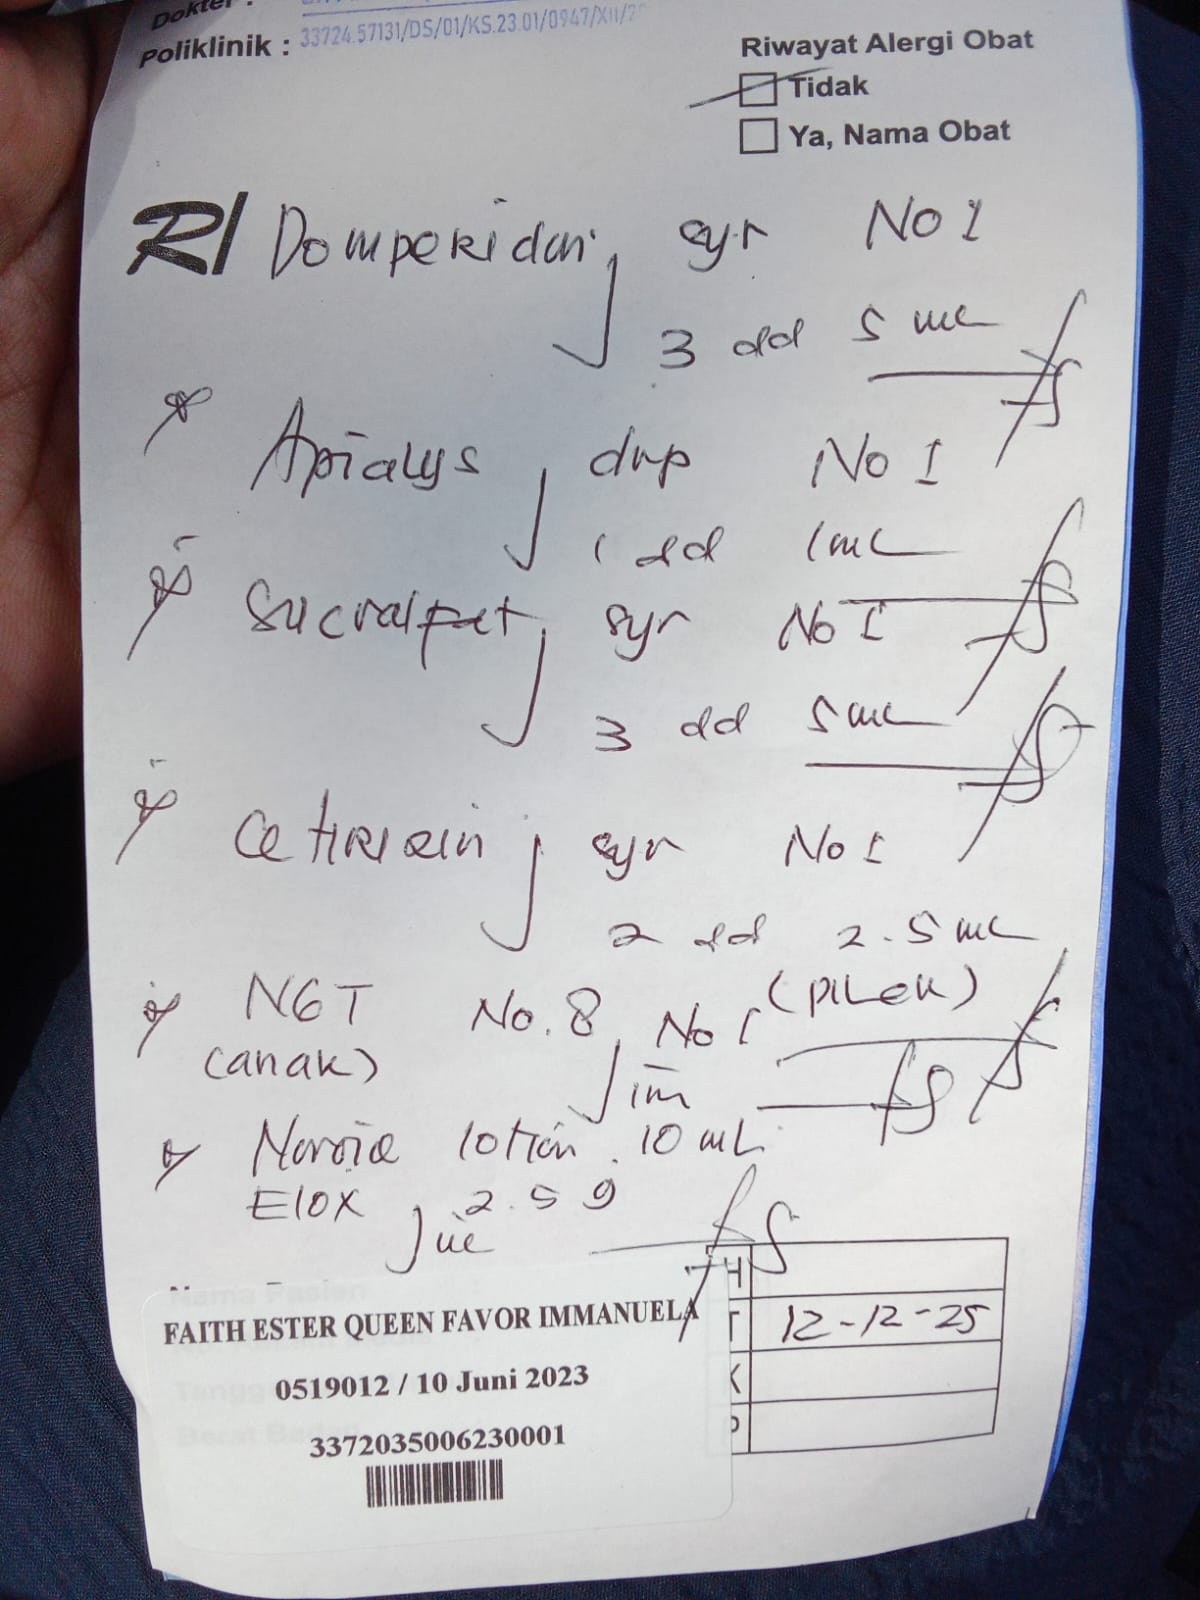 Dokter :
Poliklinik : 33724.57131/DS/01/KS.23.01/0947/XII/2
Riwayat Alergi Obat
Tidak
Ya, Nama Obat
R/ Domperidon syr No I
3 dd 5 ml
Apialys drp No I
1 dd 1 ml
Sucralfat syr No I
3 dd 5 ml
Cetirizin syr No I
2 dd 2.5 ml
(pilek)
NGT No. 8, No I
(anak) im
lotion 10 ml
Elox 2.5 g
ue
Nama Pasien
FAITH ESTER QUEEN FAVOR IMMANUELA
0519012 / 10 Juni 2023
3372035006230001
H
T 12-12-25
K
P